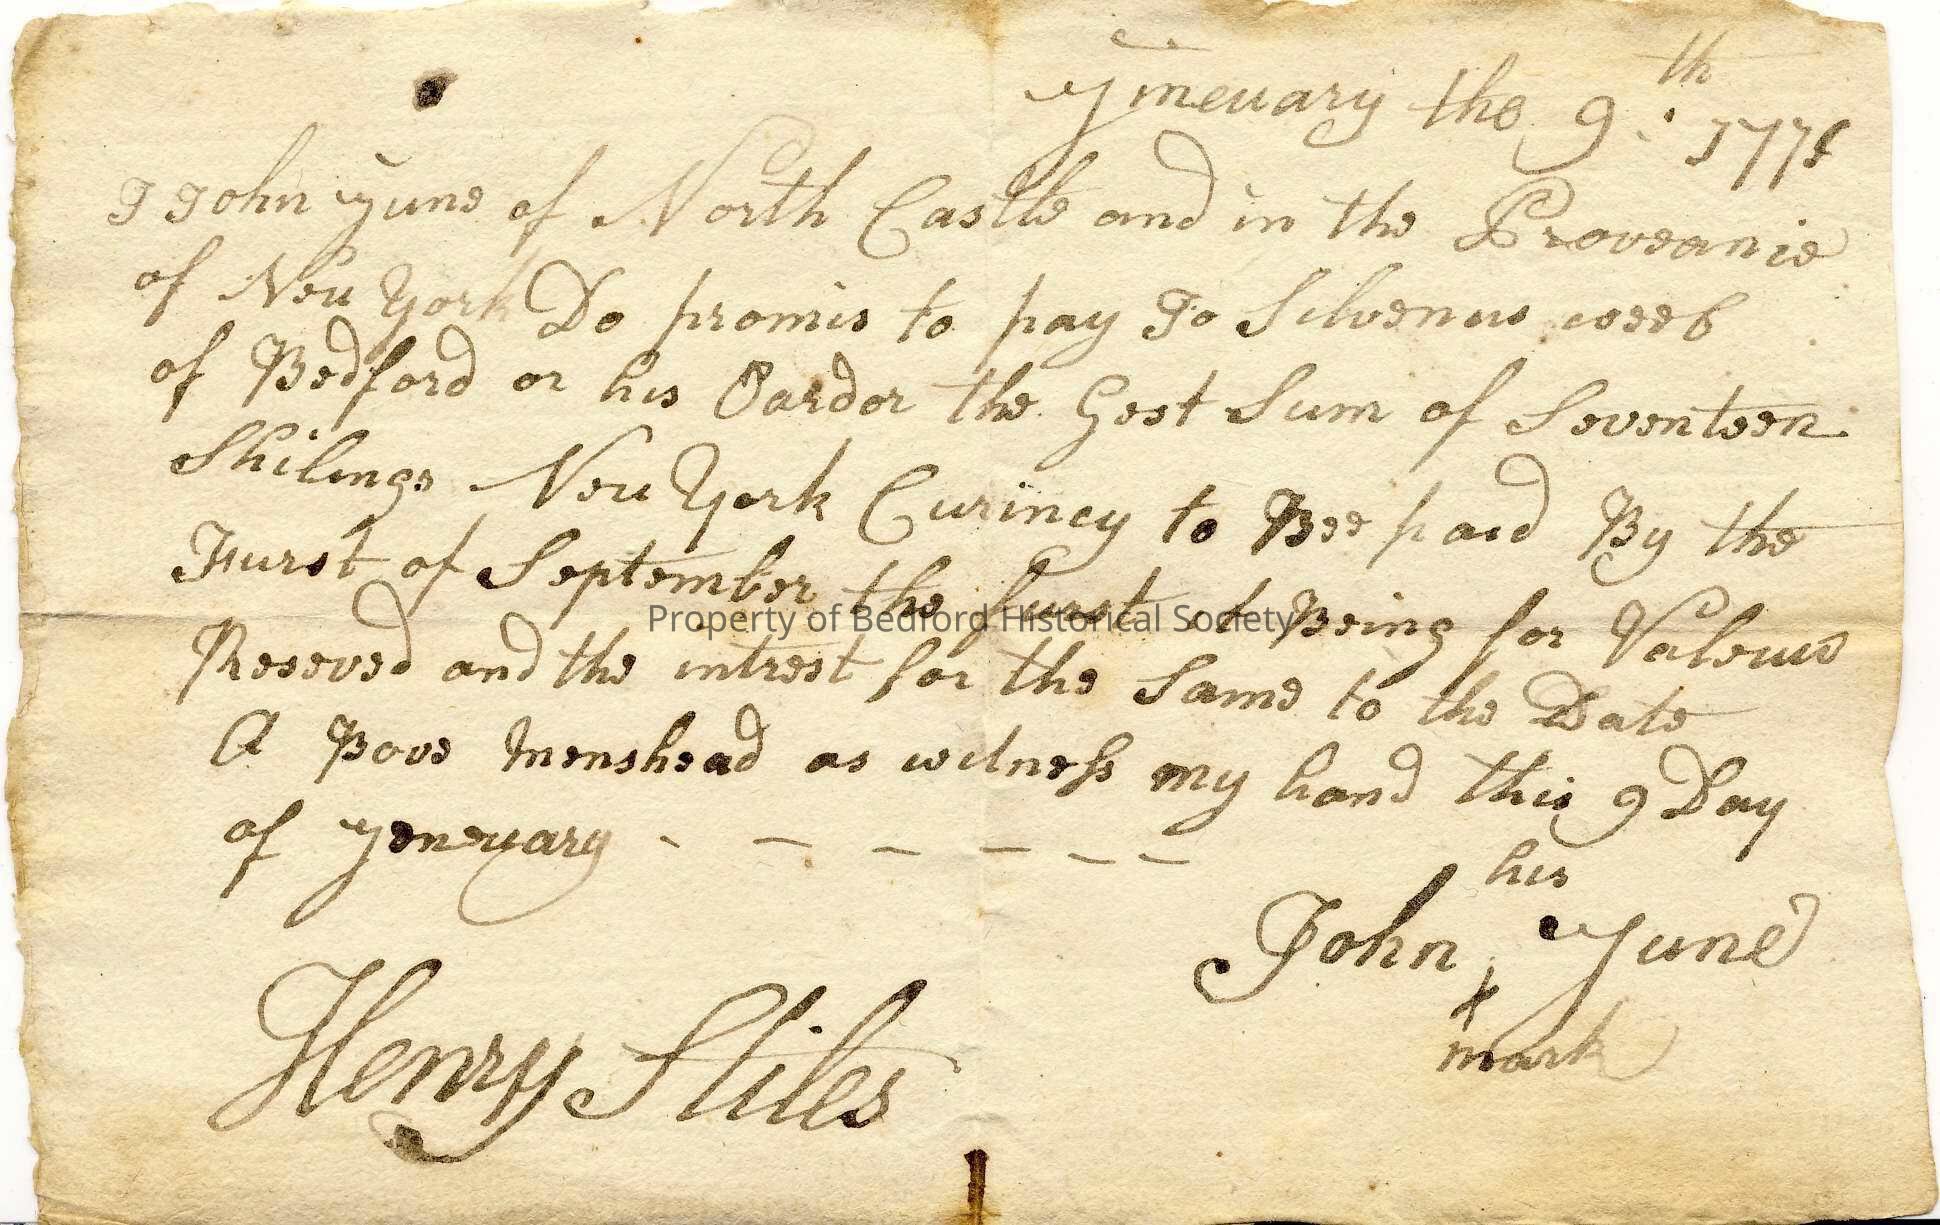 Yineuary the 9th 1775
I John Yune of North Castle and in the Proveanie
of New York Do promis to pay To Silvenus weeb
of Bedford or his Oardor the Gest Sum of Seventeen
Shilings New York Curincy to Bee paid By the
Furst of September the furst it Being for Valeuus
Reseved and the intrest for the Same to the Date
A Bove menshead as witness my hand this 9 Day
of Yeneuary
his
John Yune
x
mark
Henry Stiles
Property of Bedford Historical Society